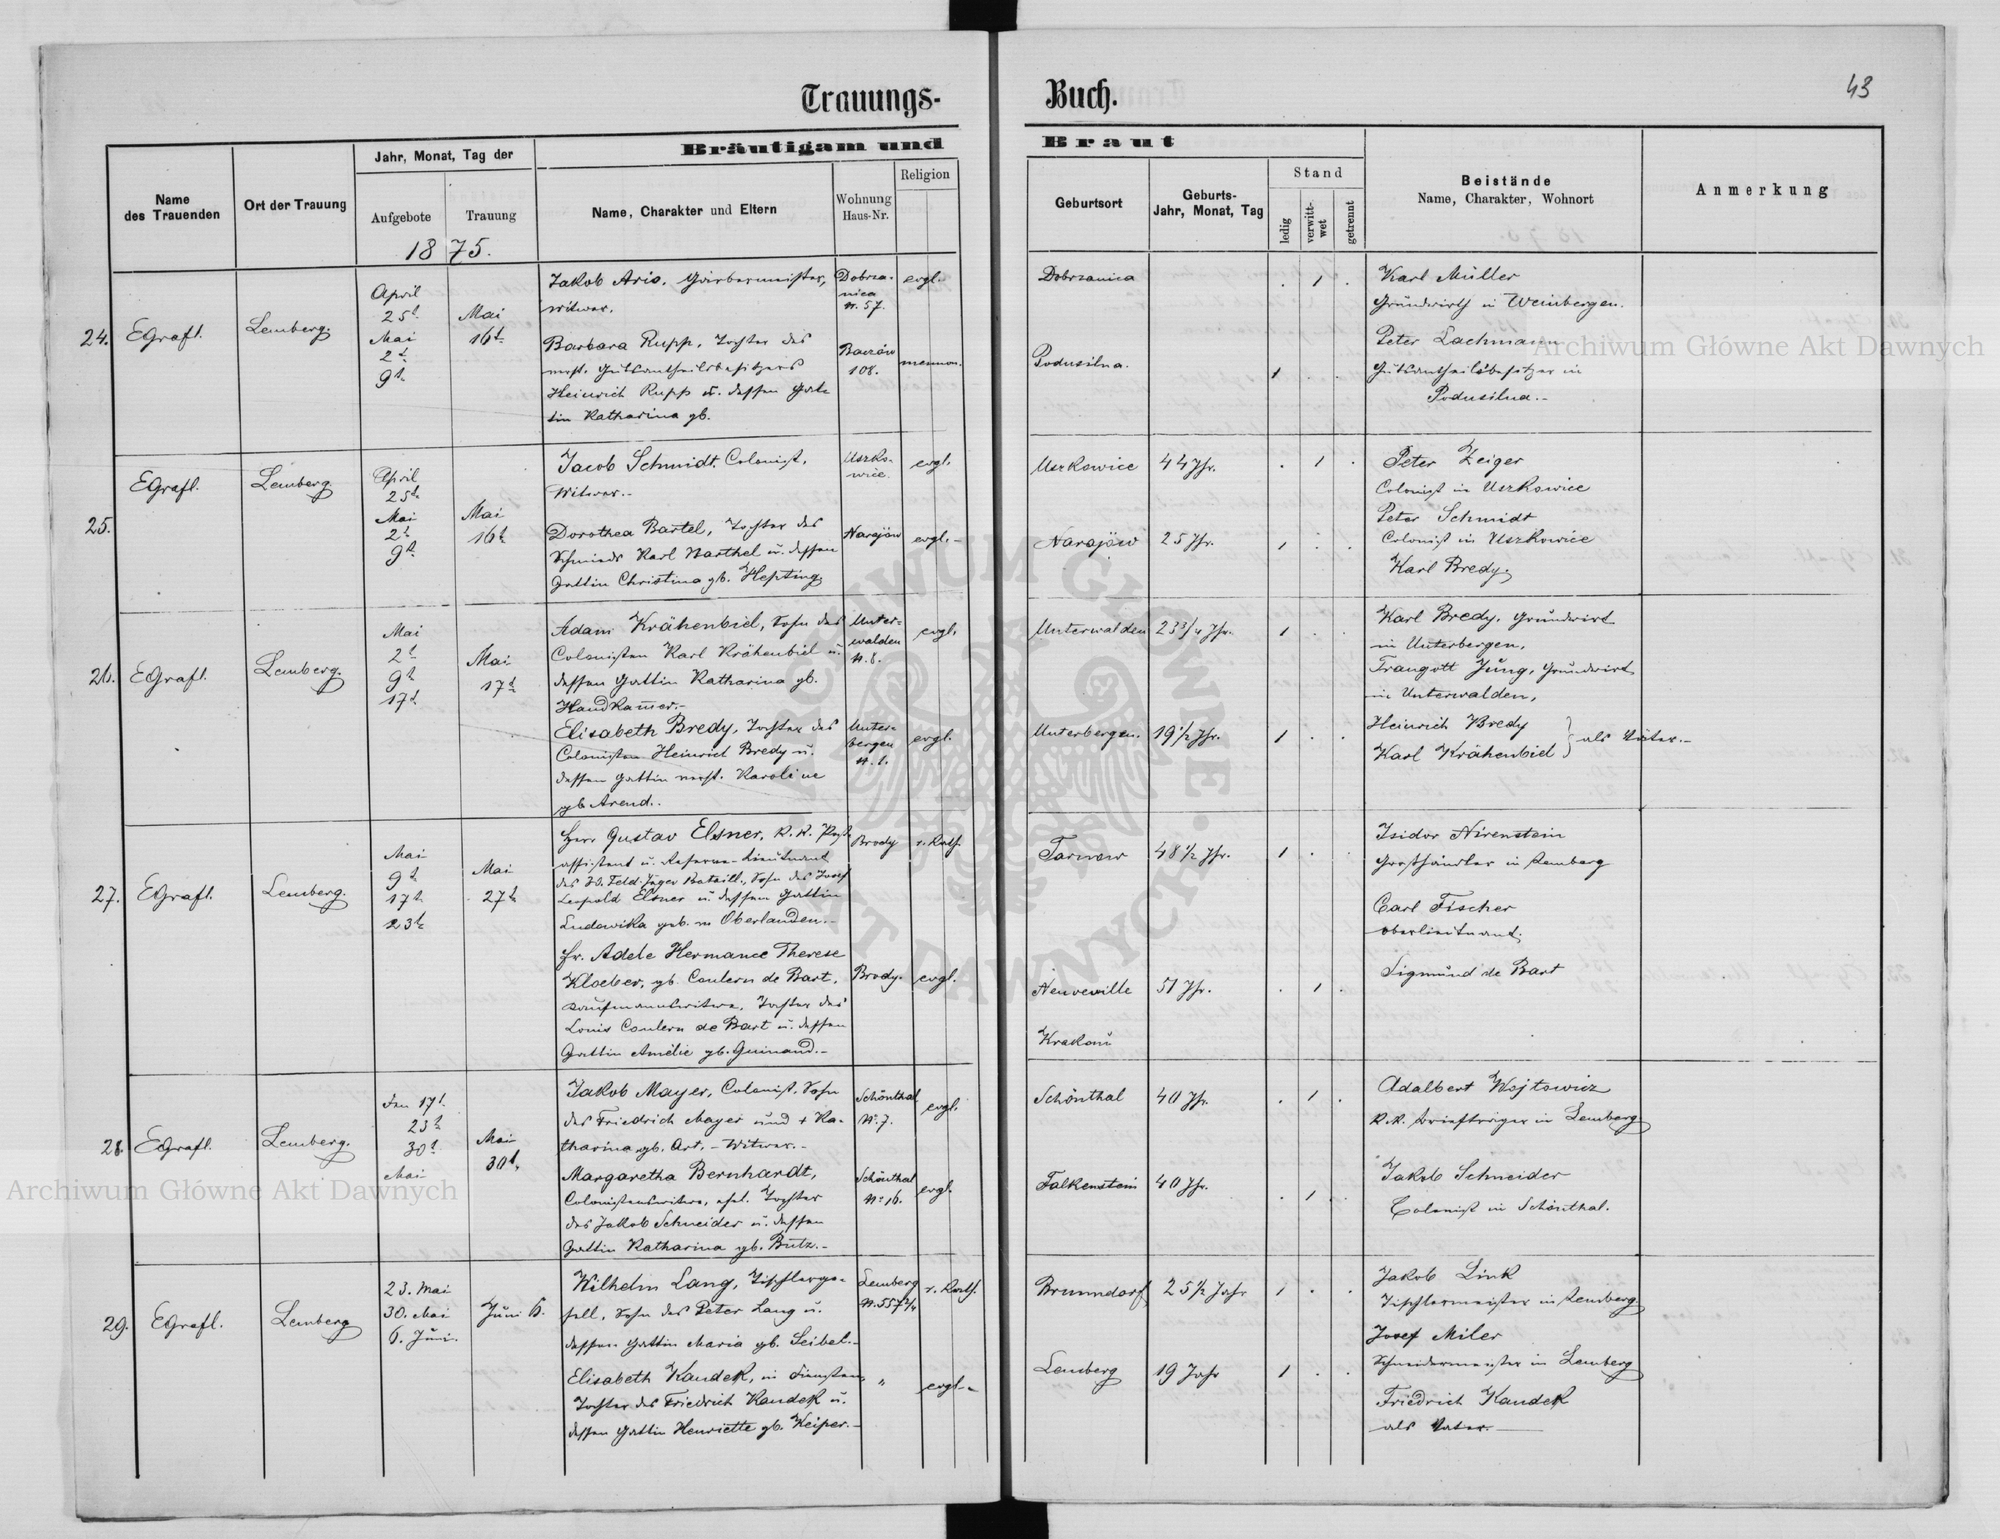 Trauungs-
Buch.
43
Bräutigam und
Braut
Name
des Trauenden
Ort der Trauung
Jahr, Monat, Tag der
Aufgebote
Trauung
1875.
Name, Charakter und Eltern
Wohnung
Haus-Nr.
Religion
Geburtsort
Geburts-
Jahr, Monat, Tag
Stand
ledig
verwitt-
wet
getrennt
Beistände
Name, Charakter, Wohnort
Anmerkung
24.
EGrafl.
Lemberg.
April
25t
Mai
2t
9t
Mai
16t
Jakob Aris, Gärbermeister,
Witwer.
Barbara Rupp, Tochter des
verst. Gutsantheilsbesitzers
Heinrich Rupp u. dessen Gat-
tin Katharina gb.
Dobrza-
nica
N. 57.
108.
evgl.
mennon.
Dobrzanica
Podusilna.
Karl Müller
Grundwirth in Weinbergen.
Peter Lachmann
Gutsantheilsbesitzer in
Podusilna.-
25.
EGrafl.
Lemberg
April
25t
Mai
2t
9t
Mai
16t
Jacob Schmidt, Colonist,
Witwer.-
Dorothea Bartel, Tochter des
Schmieds Karl Barthel u. dessen
Gattin Christina gb. Hepting.
Uszko-
wice.
Narajów
evgl.
evgl.-
Uszkowice
44 Jhr.
Narajów
25 Jhr.
Peter Zeiger
Colonist in Uszkowice
Peter Schmidt
Colonist in Uszkowice
Karl Bredy.
26.
EGrafl.
Lemberg.
Mai
2t
9t
17t
Mai
17t
Adam Krähenbiel, Sohn des
Colonisten Karl Krähenbiel u.
dessen Gattin Katharina gb.
Handkamer.-
Elisabeth Bredy, Tochter des
Colonisten Heinrich Bredy u.
dessen Gattin verst. Karoline
gb Arend.
Unter-
walden
N. 8.
Unter-
bergen
N. 1.
evgl.
evgl.
Unterwalden
23 3/4 Jhr.
Unterbergen.
19 1/2 Jhr.
Karl Bredy, Grundwirt
in Unterbergen.
Traugott Jung, Grundwirt
in Unterwalden,
Heinrich Bredy
Karl Krähenbiel } als Väter.-
27.
EGrafl.
Lemberg.
Mai
9t
17t
23t
Mai
27t
Herr Gustav Elsner, K.K. Post-
assistent u. Reserve-Lieutnant
des 30. Feld-Jäger Bataill., Sohn des Josef
Leopold Elsner u. dessen Gattin
Ludowika geb. v. Oberlanden.-
Fr. Adele Hermance Therese
Kloeber, gb. Coulern de Bart,
Kaufmannswitwe, Tochter des
Louis Coulern de Bart u. dessen
Gattin Amélie gb. Guinand.-
Brody
Brody.
r. Kath.
evgl.
Tarnow
48 1/2 Jhr.
Neuveville
51 Jhr.
Krakau
Isidor Nirenstein
Großhändler in Lemberg
Carl Fischer
Oberlieutnant.
Sigmund de Bart
28.
EGrafl.
Lemberg.
Den 17t.
23t
30t
Mai
Mai
30t.
Jakob Mayer, Colonist, Sohn
des Friedrich Mayer und + Ka-
tharina gb. Art, - Witwer.-
Margaretha Bernhardt,
Colonistenswitwe, ehel. Tochter
des Jakob Schneider u. dessen
Gattin Katharina gb. Butz.-
Schönthal
N. 7.
Schönthal
N. 16.
evgl.
evgl.
Schönthal
40 Jhr.
Falkenstein
40 Jhr.
Adalbert Wojtowicz
K.K. Briefträger in Lemberg
Jakob Schneider
Colonist in Schönthal.
29.
EGrafl.
Lemberg
23. Mai
30. Mai
6. Juni
Juni 6.
Wilhelm Lang, Tischlerge-
sell, Sohn des Peter Lang u.
dessen Gattin Maria gb. Seibel.-
Elisabeth Kandek, in Diensten
Tochter des Friedrich Kandek u.
dessen Gattin Henriette gb. Keiper.-
Lemberg
N. 557 2/4
"
r. Kath.
evgl.-
Brunndorf
25 1/2 Jahr
Lemberg
19 Jahr
Jakob Link
Tischlermeister in Lemberg
Josef Miler
Schneidermeister in Lemberg
Friedrich Kandek
als Vater.-
Archiwum Główne Akt Dawnych
Archiwum Główne Akt Dawnych
ARCHIWUM GŁÓWNE AKT DAWNYCH